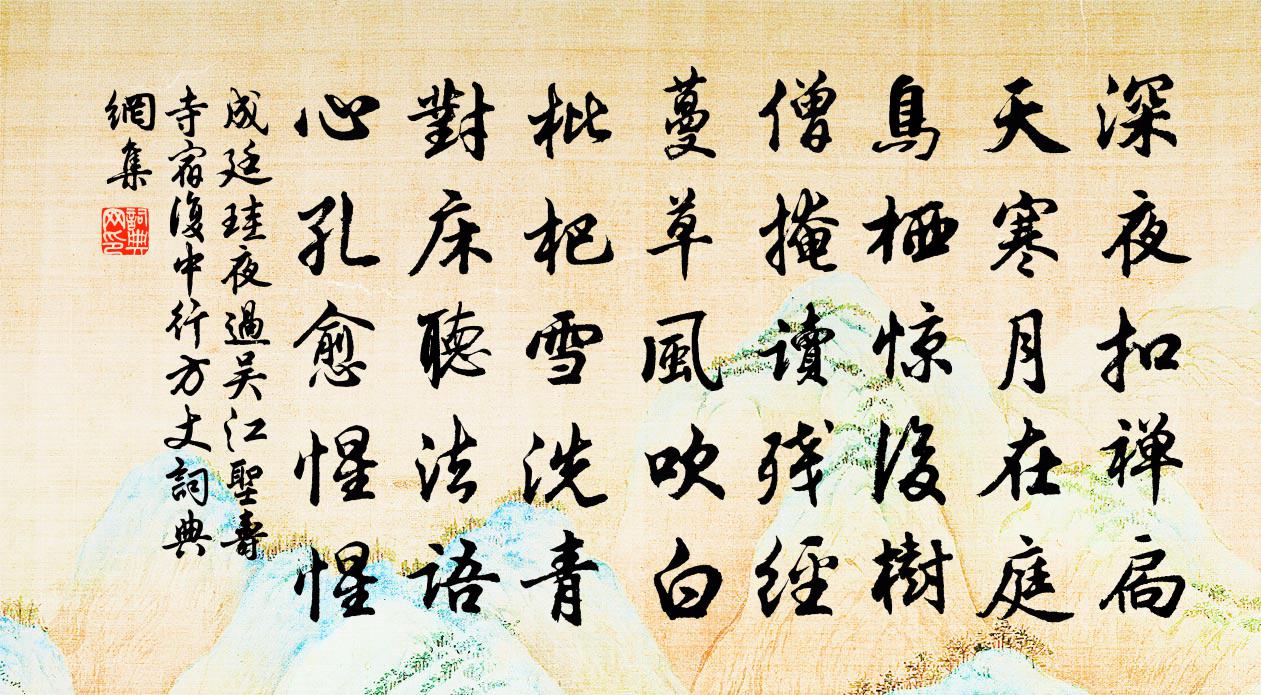 深夜扣禅扃
天寒月在庭
鳥栖惊後樹
僧掩讀残經
蔓草風吹白
枇杷雪洗青
對床聽法語
心孔愈惺惺
成廷珪夜過吴江聖壽
寺宿復中行方丈詞典
網集
詞典网印